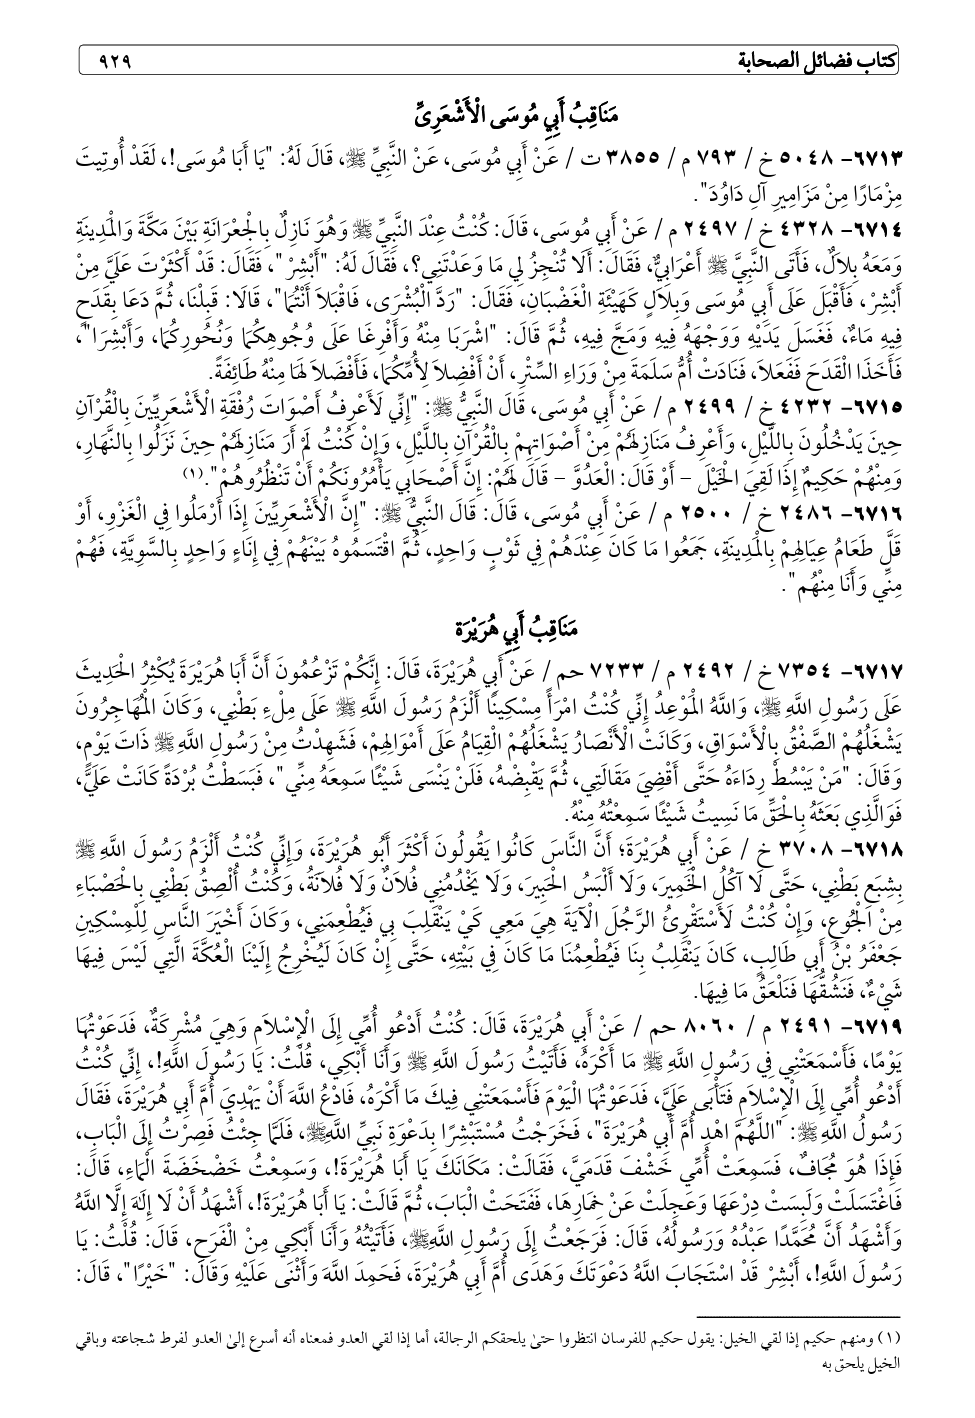 كتاب فضائل الصحابة ٩٢٩
مَنَاقِبُ أَبِي مُوسَى الْأَشْعَرِيِّ
٦٧١٣- ٥٠٤٨ خ / ٧٩٣ م / ٣٨٥٥ ت / عَنْ أَبِي مُوسَى، عَنْ النَّبِيِّ ﷺ، قَالَ لَهُ: "يَا أَبَا مُوسَى!، لَقَدْ أُوتِيتَ
مِزْمَارًا مِنْ مَزَامِيرِ آلِ دَاوُدَ".
٦٧١٤- ٤٣٢٨ خ / ٢٤٩٧ م / عَنْ أَبِي مُوسَى، قَالَ: كُنْتُ عِنْدَ النَّبِيِّ ﷺ وَهُوَ نَازِلٌ بِالْجِعْرَانَةِ بَيْنَ مَكَّةَ وَالْمَدِينَةِ
وَمَعَهُ بِلَالٌ، فَأَتَى النَّبِيَّ ﷺ أَعْرَابِيٌّ، فَقَالَ: أَلَا تُنْجِزُ لِي مَا وَعَدْتَنِي؟، فَقَالَ لَهُ: "أَبْشِرْ"، فَقَالَ: قَدْ أَكْثَرْتَ عَلَيَّ مِنْ
أَبْشِرْ، فَأَقْبَلَ عَلَى أَبِي مُوسَى وَبِلَالٍ كَهَيْئَةِ الْغَضْبَانِ، فَقَالَ: "رَدَّ الْبُشْرَى، فَاقْبَلَا أَنْتُمَا"، قَالَا: قَبِلْنَا، ثُمَّ دَعَا بِقَدَحٍ
فِيهِ مَاءٌ، فَغَسَلَ يَدَيْهِ وَوَجْهَهُ فِيهِ وَمَجَّ فِيهِ، ثُمَّ قَالَ: "اشْرَبَا مِنْهُ وَأَفْرِغَا عَلَى وُجُوهِكُمَا وَنُحُورِكُمَا، وَأَبْشِرَا"،
فَأَخَذَا الْقَدَحَ فَفَعَلَا، فَنَادَتْ أُمُّ سَلَمَةَ مِنْ وَرَاءِ السِّتْرِ، أَنْ أَفْضِلَا لِأُمِّكُمَا، فَأَفْضَلَا لَهَا مِنْهُ طَائِفَةً.
٦٧١٥- ٤٢٣٢ خ / ٢٤٩٩ م / عَنْ أَبِي مُوسَى، قَالَ النَّبِيُّ ﷺ: "إِنِّي لَأَعْرِفُ أَصْوَاتَ رُفْقَةِ الْأَشْعَرِيِّينَ بِالْقُرْآنِ
حِينَ يَدْخُلُونَ بِاللَّيْلِ، وَأَعْرِفُ مَنَازِلَهُمْ مِنْ أَصْوَاتِهِمْ بِالْقُرْآنِ بِاللَّيْلِ، وَإِنْ كُنْتُ لَمْ أَرَ مَنَازِلَهُمْ حِينَ نَزَلُوا بِالنَّهَارِ،
وَمِنْهُمْ حَكِيمٌ إِذَا لَقِيَ الْخَيْلَ – أَوْ قَالَ: الْعَدُوَّ – قَالَ لَهُمْ: إِنَّ أَصْحَابِي يَأْمُرُونَكُمْ أَنْ تَنْظُرُوهُمْ".(١)
٦٧١٦- ٢٤٨٦ خ / ٢٥٠٠ م / عَنْ أَبِي مُوسَى، قَالَ: قَالَ النَّبِيُّ ﷺ: "إِنَّ الْأَشْعَرِيِّينَ إِذَا أَرْمَلُوا فِي الْغَزْوِ، أَوْ
قَلَّ طَعَامُ عِيَالِهِمْ بِالْمَدِينَةِ، جَمَعُوا مَا كَانَ عِنْدَهُمْ فِي ثَوْبٍ وَاحِدٍ، ثُمَّ اقْتَسَمُوهُ بَيْنَهُمْ فِي إِنَاءٍ وَاحِدٍ بِالسَّوِيَّةِ، فَهُمْ
مِنِّي وَأَنَا مِنْهُمْ".
مَنَاقِبُ أَبِي هُرَيْرَة
٦٧١٧- ٧٣٥٤ خ / ٢٤٩٢ م / ٧٢٣٣ حم / عَنْ أَبِي هُرَيْرَةَ، قَالَ: إِنَّكُمْ تَزْعُمُونَ أَنَّ أَبَا هُرَيْرَةَ يُكْثِرُ الْحَدِيثَ
عَلَى رَسُولِ اللَّهِ ﷺ، وَاللَّهُ الْمَوْعِدُ إِنِّي كُنْتُ امْرَأً مِسْكِينًا أَلْزَمُ رَسُولَ اللَّهِ ﷺ عَلَى مِلْءِ بَطْنِي، وَكَانَ الْمُهَاجِرُونَ
يَشْغَلُهُمْ الصَّفْقُ بِالْأَسْوَاقِ، وَكَانَتْ الْأَنْصَارُ يَشْغَلُهُمْ الْقِيَامُ عَلَى أَمْوَالِهِمْ، فَشَهِدْتُ مِنْ رَسُولِ اللَّهِ ﷺ ذَاتَ يَوْمٍ،
وَقَالَ: "مَنْ يَبْسُطْ رِدَاءَهُ حَتَّى أَقْضِيَ مَقَالَتِي، ثُمَّ يَقْبِضْهُ، فَلَنْ يَنْسَى شَيْئًا سَمِعَهُ مِنِّي"، فَبَسَطْتُ بُرْدَةً كَانَتْ عَلَيَّ،
فَوَالَّذِي بَعَثَهُ بِالْحَقِّ مَا نَسِيتُ شَيْئًا سَمِعْتُهُ مِنْهُ.
٦٧١٨- ٣٧٠٨ خ / عَنْ أَبِي هُرَيْرَةَ؛ أَنَّ النَّاسَ كَانُوا يَقُولُونَ أَكْثَرَ أَبُو هُرَيْرَةَ، وَإِنِّي كُنْتُ أَلْزَمُ رَسُولَ اللَّهِ ﷺ
بِشِبَعِ بَطْنِي، حَتَّى لَا آكُلُ الْخَمِيرَ، وَلَا أَلْبَسُ الْحَبِيرَ، وَلَا يَخْدُمُنِي فُلَانٌ وَلَا فُلَانَةُ، وَكُنْتُ أُلْصِقُ بَطْنِي بِالْحَصْبَاءِ
مِنْ الْجُوعِ، وَإِنْ كُنْتُ لَأَسْتَقْرِئُ الرَّجُلَ الْآيَةَ هِيَ مَعِي كَيْ يَنْقَلِبَ بِي فَيُطْعِمَنِي، وَكَانَ أَخْيَرَ النَّاسِ لِلْمِسْكِينِ
جَعْفَرُ بْنُ أَبِي طَالِبٍ، كَانَ يَنْقَلِبُ بِنَا فَيُطْعِمُنَا مَا كَانَ فِي بَيْتِهِ، حَتَّى إِنْ كَانَ لَيُخْرِجُ إِلَيْنَا الْعُكَّةَ الَّتِي لَيْسَ فِيهَا
شَيْءٌ، فَنَشُقُّهَا فَنَلْعَقُ مَا فِيهَا.
٦٧١٩- ٢٤٩١ م / ٨٠٦٠ حم / عَنْ أَبِي هُرَيْرَةَ، قَالَ: كُنْتُ أَدْعُو أُمِّي إِلَى الْإِسْلَامِ وَهِيَ مُشْرِكَةٌ، فَدَعَوْتُهَا
يَوْمًا، فَأَسْمَعَتْنِي فِي رَسُولِ اللَّهِ ﷺ مَا أَكْرَهُ، فَأَتَيْتُ رَسُولَ اللَّهِ ﷺ وَأَنَا أَبْكِي، قُلْتُ: يَا رَسُولَ اللَّهِ!، إِنِّي كُنْتُ
أَدْعُو أُمِّي إِلَى الْإِسْلَامِ فَتَأْبَى عَلَيَّ، فَدَعَوْتُهَا الْيَوْمَ فَأَسْمَعَتْنِي فِيكَ مَا أَكْرَهُ، فَادْعُ اللَّهَ أَنْ يَهْدِيَ أُمَّ أَبِي هُرَيْرَةَ، فَقَالَ
رَسُولُ اللَّهِ ﷺ: "اللَّهُمَّ اهْدِ أُمَّ أَبِي هُرَيْرَةَ"، فَخَرَجْتُ مُسْتَبْشِرًا بِدَعْوَةِ نَبِيِّ اللَّهِ ﷺ، فَلَمَّا جِئْتُ فَصِرْتُ إِلَى الْبَابِ،
فَإِذَا هُوَ مُجَافٌ، فَسَمِعَتْ أُمِّي خَشْفَ قَدَمَيَّ، فَقَالَتْ: مَكَانَكَ يَا أَبَا هُرَيْرَةَ!، وَسَمِعْتُ خَضْخَضَةَ الْمَاءِ، قَالَ:
فَاغْتَسَلَتْ وَلَبِسَتْ دِرْعَهَا وَعَجِلَتْ عَنْ خِمَارِهَا، فَفَتَحَتْ الْبَابَ، ثُمَّ قَالَتْ: يَا أَبَا هُرَيْرَةَ!، أَشْهَدُ أَنْ لَا إِلَهَ إِلَّا اللَّهُ
وَأَشْهَدُ أَنَّ مُحَمَّدًا عَبْدُهُ وَرَسُولُهُ، قَالَ: فَرَجَعْتُ إِلَى رَسُولِ اللَّهِ ﷺ، فَأَتَيْتُهُ وَأَنَا أَبْكِي مِنْ الْفَرَحِ، قَالَ: قُلْتُ: يَا
رَسُولَ اللَّهِ!، أَبْشِرْ قَدْ اسْتَجَابَ اللَّهُ دَعْوَتَكَ وَهَدَى أُمَّ أَبِي هُرَيْرَةَ، فَحَمِدَ اللَّهَ وَأَثْنَى عَلَيْهِ وَقَالَ: "خَيْرًا"، قَالَ:
(١) ومنهم حكيم إذا لقي الخيل: يقول حكيم للفرسان انتظروا حتىٰ يلحقكم الرجالة، أما إذا لقي العدو فمعناه أنه أسرع إلىٰ العدو لفرط شجاعته وباقي
الخيل يلحق به